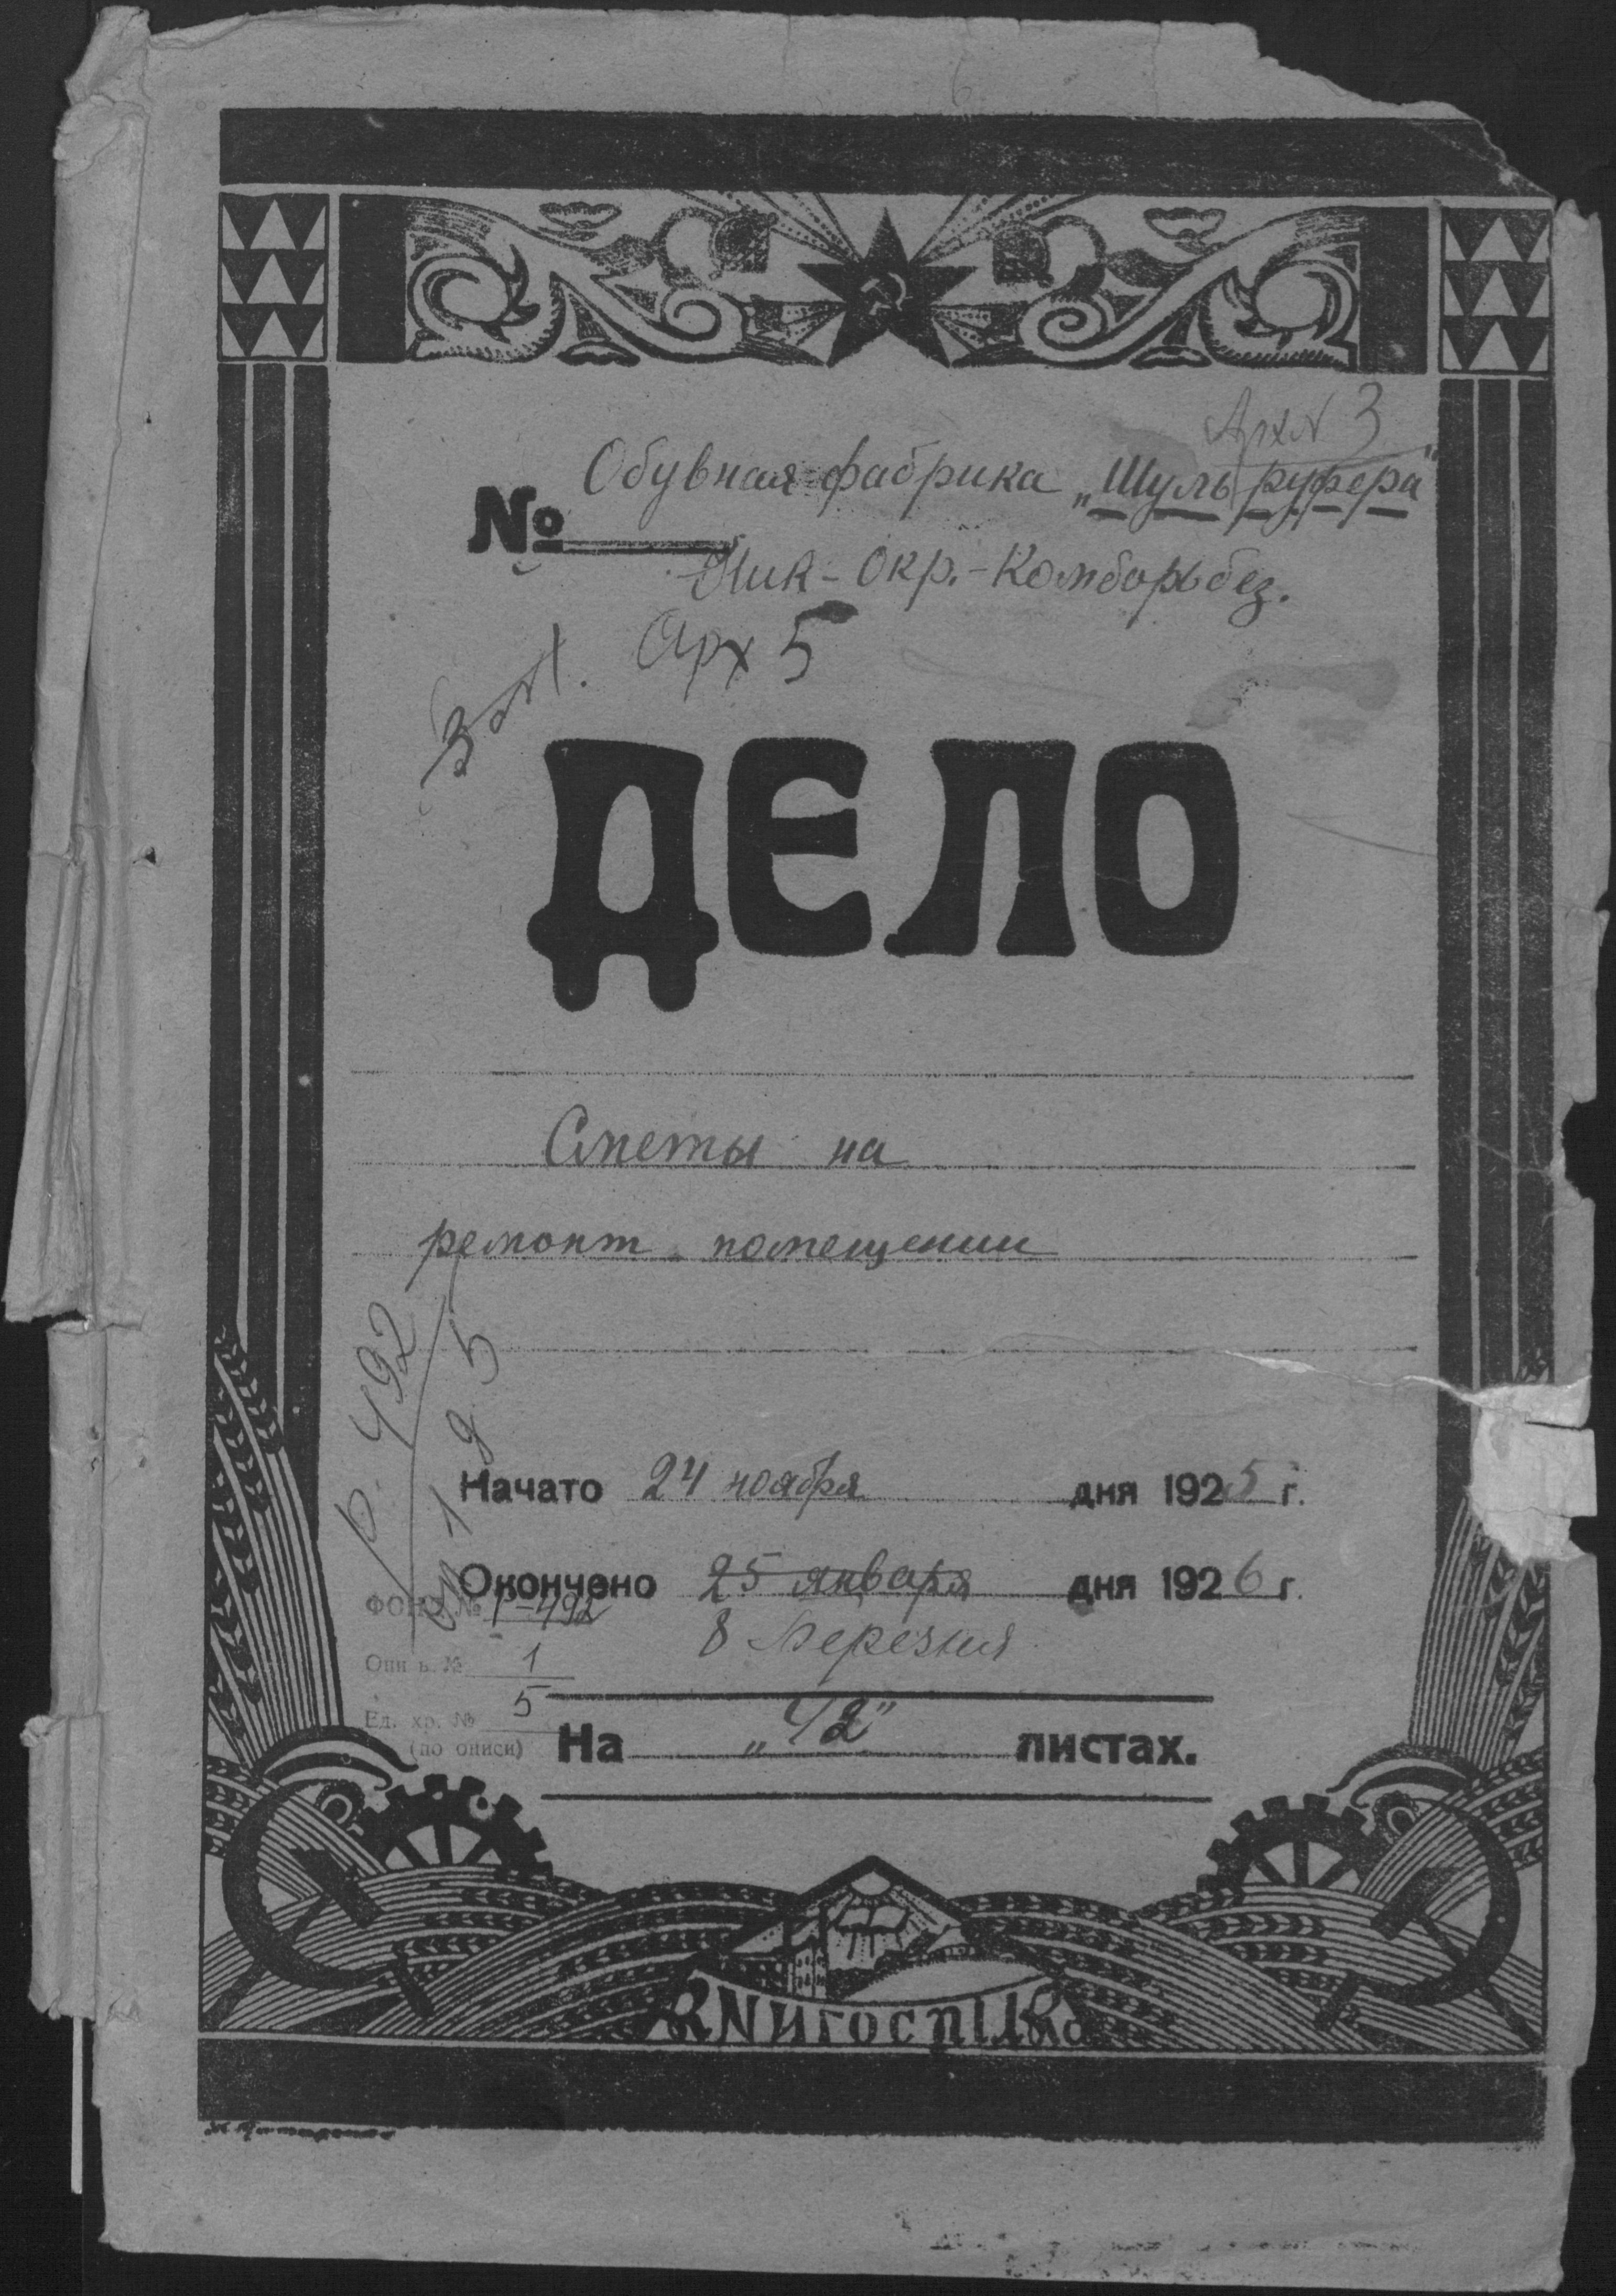 Арх № 3
Обувная фабрика „Шульруфера"
№
Ник-Окр.-Комборьбез.
Арх 5
ДЕЛО
Сметы на
ремонт помещении
Р. 492
оп 1 д. 5
Начато 24 ноября дня 1925 г.
Окончено 25 января дня 1926 г.
8 березня
ФОНД № Р-492
Опись № 1
Ед. хр. № 5
(по описи)
На „42" листах.
КНИГОСПІЛКА